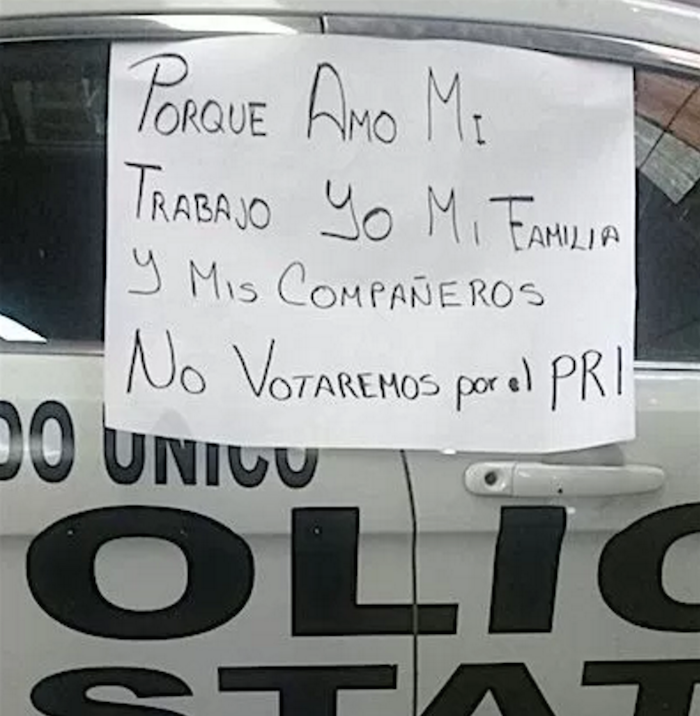 PORQUE AMO MI
TRABAJO YO MI FAMILIA
Y MIS COMPAÑEROS
NO VOTAREMOS por el PRI
DO UNICO
OLIC
STAT